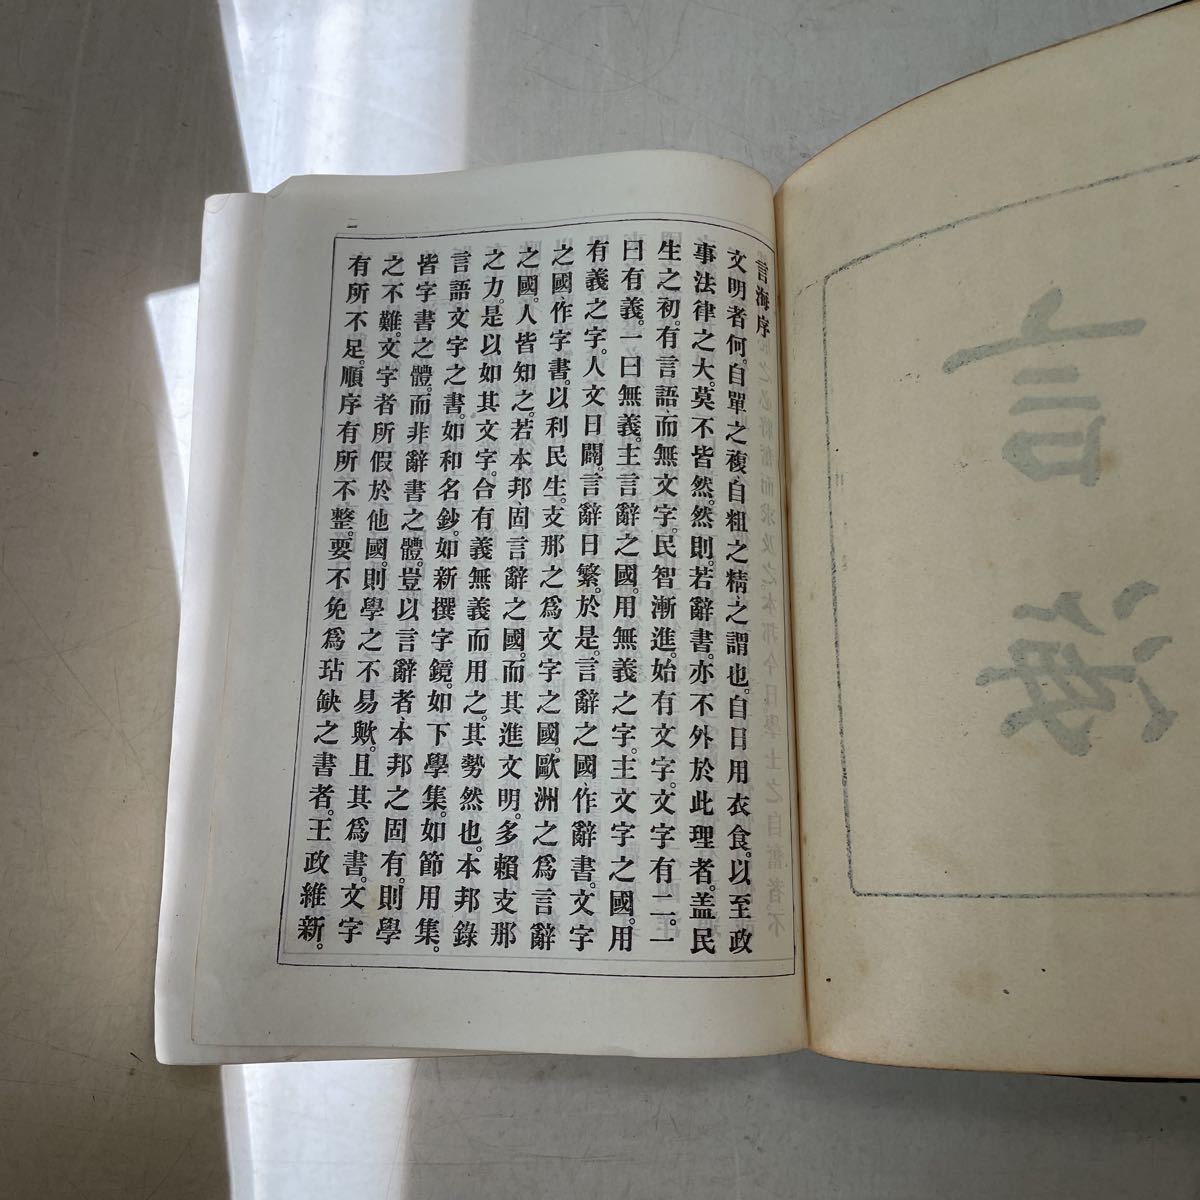 言海序
文明者何。自單之複、自粗之精、之謂也。自日用衣食。以至政
事法律之大。莫不皆然。然則。若辭書。亦不外於此理者。盖民
生之初。有言語、而無文字。民智漸進。始有文字。文字有二。一
曰有義。一曰無義。主言辭之國。用無義之字。主文字之國。用
有義之字。人文日闢。言辭日繁。於是。言辭之國、作辭書。文字
之國、作字書。以利民生。支那之爲文字之國。歐洲之爲言辭
之國。人皆知之。若本邦、固言辭之國。而其進文明。多賴支那
之力。是以如其文字。合有義無義而用之。其勢然也。本邦錄
言語文字之書。如和名鈔。如新撰字鏡。如下學集。如節用集。
皆字書之體。而非辭書之體。豈以言辭者、本邦之固有。則學
之不難。文字者所假於他國。則學之不易歟。且其爲書。文字
有所不足。順序有所不整。要不免爲玷缺之書者。王政維新。
二
言海